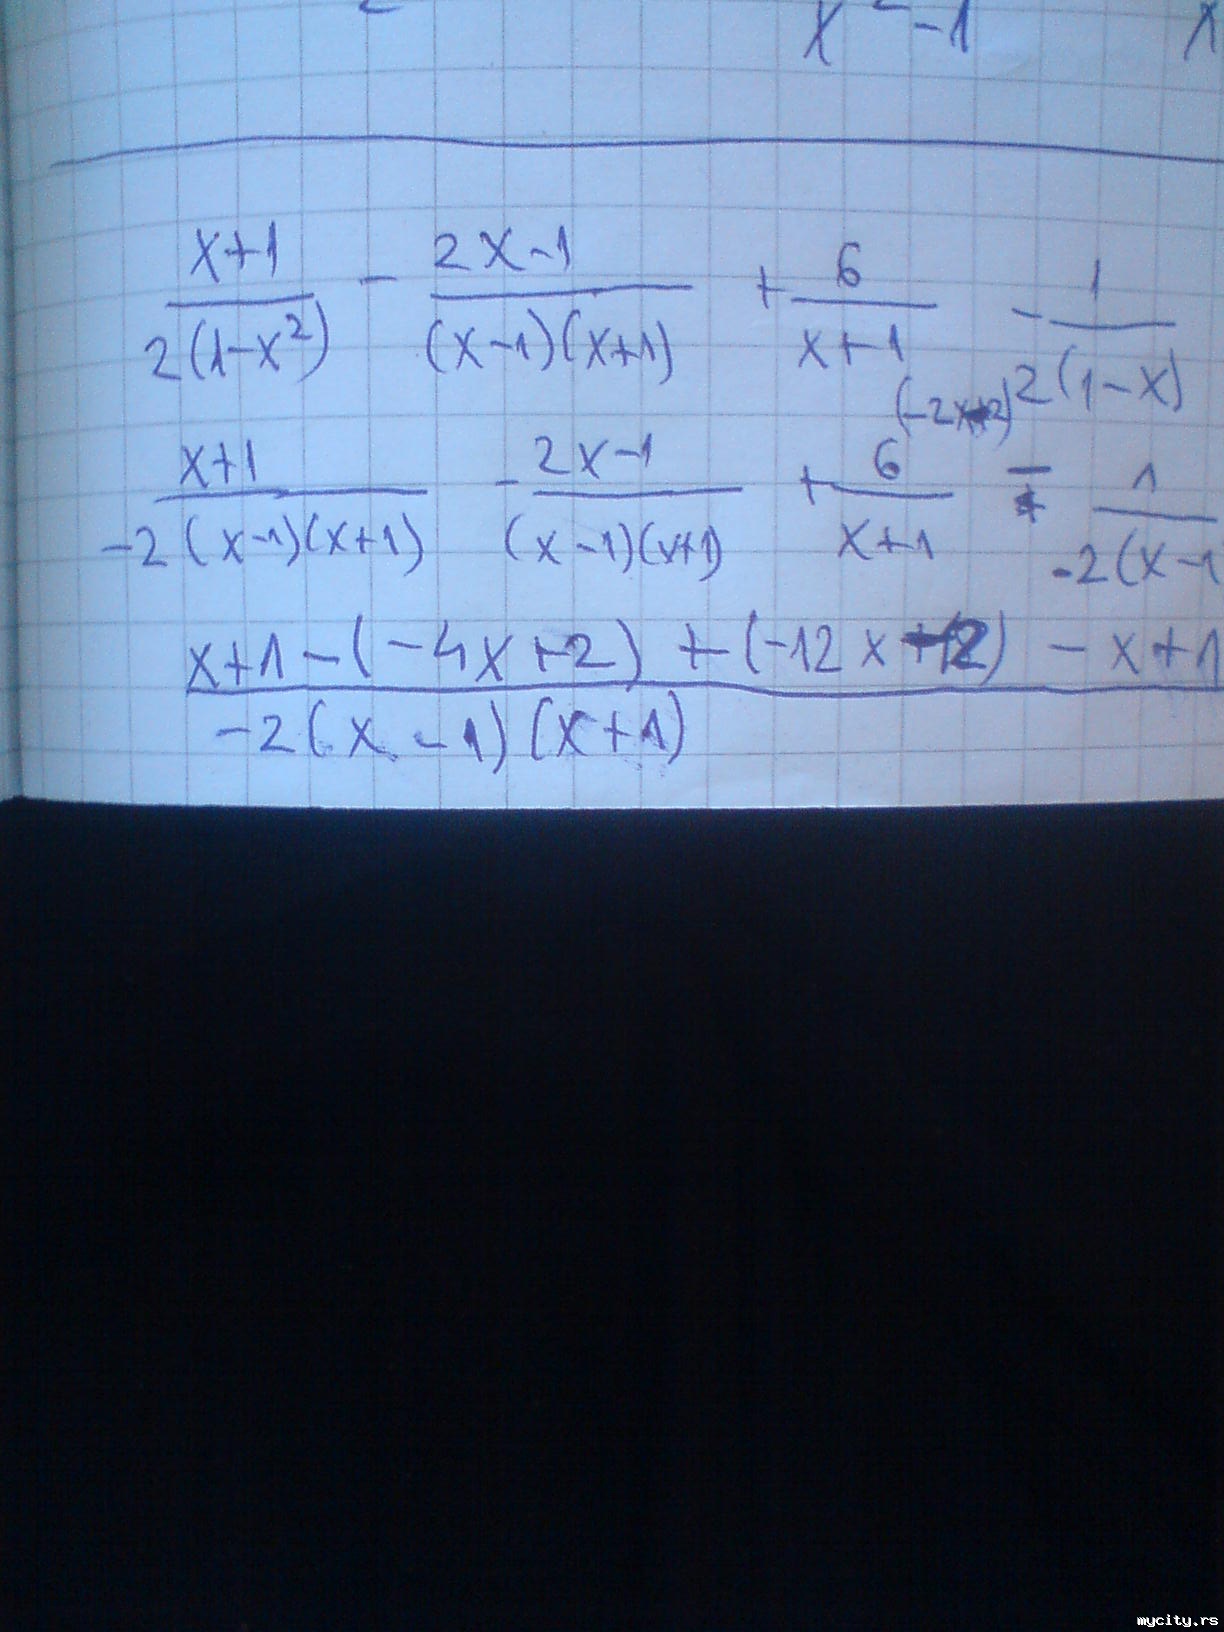 x² - 1 x
(x+1)/(2(1-x²)) - (2x-1)/((x-1)(x+1)) + 6/(x+1) - 1/(2(1-x))
(-2x+2)
(x+1)/(-2(x-1)(x+1)) - (2x-1)/((x-1)(x+1)) + 6/(x+1) - 1/(-2(x-1
(x+1-(-4x+2)+(-12x+12)-x+1)/(-2(x-1)(x+1))
mycity.rs